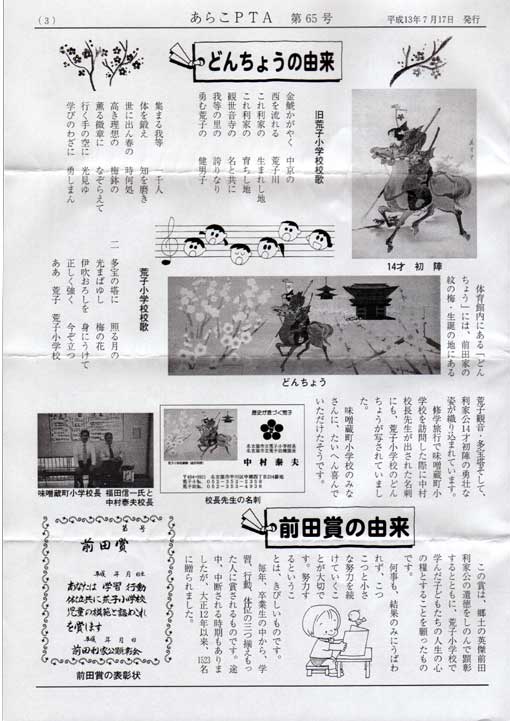 (3)
あらこPTA 第65号
平成13年7月17日 発行
どんちょうの由来
14才 初陣
旧荒子小学校校歌
金鯱かがやく 中京の
西を流れる 荒子川
これ利家の 生まれし地
これ利家の 育ちし地
観世音寺の 名と共に
我等の里の 誇りなり
勇む荒子の 健男子
集まる我等 一千人
体を鍛え 知を磨き
世に出ん春の 時何処
高き理想の 梅鉢の
薫る徽章に なぞらえて
行く手の空に 光見ゆ
学びのわざに 勇しまん
荒子小学校校歌
二 多宝の塔に 照る月の
光まばゆし 梅の花
伊吹おろしを 身にうけて
正しく強く 今ぞ立つ
ああ 荒子 荒子小学校
体育館内にある「どん
ちょう」には、前田家の
紋の梅・生誕の地にある
どんちょう
荒子観音・多宝塔そして、
利家公14才初陣の勇壮な
姿が織り込まれています。
修学旅行で味噌蔵町小
学校を訪問した際に中村
校長先生が出された名刺
にも、荒子小学校のどん
ちょうが写されていまし
た。
味噌蔵町小学校のみな
さんに、たいへん喜んで
いただけたそうです。
歴史が息づく荒子
名古屋市立荒子小学校長
中村泰夫
校長先生の名刺
味噌蔵町小学校長 福田信一氏と
中村泰夫校長
前田賞の由来
この賞は、郷土の英傑前田
利家公の遺徳をしのんで顕彰
するとともに、荒子小学校で
学んだ子どもたちの人生の心
の糧とすることを願ったもの
です。
何事も、結果のみにうばわ
れず、こつ
こつと小さ
な努力を続
けていくこ
とが大切で
す。努力す
るというこ
とは、きびしいものです。
毎年、卒業生の中から、学
習、行動、体位の三つ揃もっ
た人に賞されるものです。途
中、中断される時期もありま
したが、大正12年以来、1523名
に贈られました。
第 号
前田賞
平成 年 月 日生
あなたは 学習 行動
体位共に荒子小学校
児童の模範と認めこれ
を賞します
平成 年 月 日
前田利家公顕彰会
前田賞の表彰状